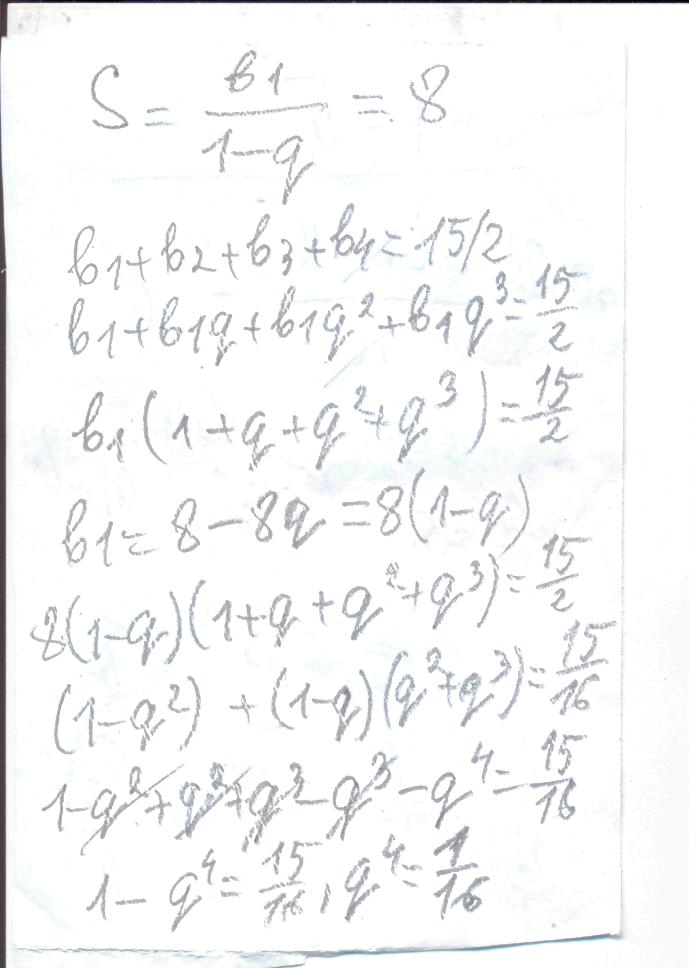 S = b1/(1-q) = 8
b1+b2+b3+b4=15/2
b1+b1q+b1q²+b1q³=15/2
b1(1+q+q²+q³)=15/2
b1=8-8q=8(1-q)
8(1-q)(1+q+q²+q³)=15/2
(1-q²)+(1-q)(q²+q³)=15/16
1-q²+q²+q³-q³-q⁴=15/16
1-q⁴=15/16, q⁴=1/16